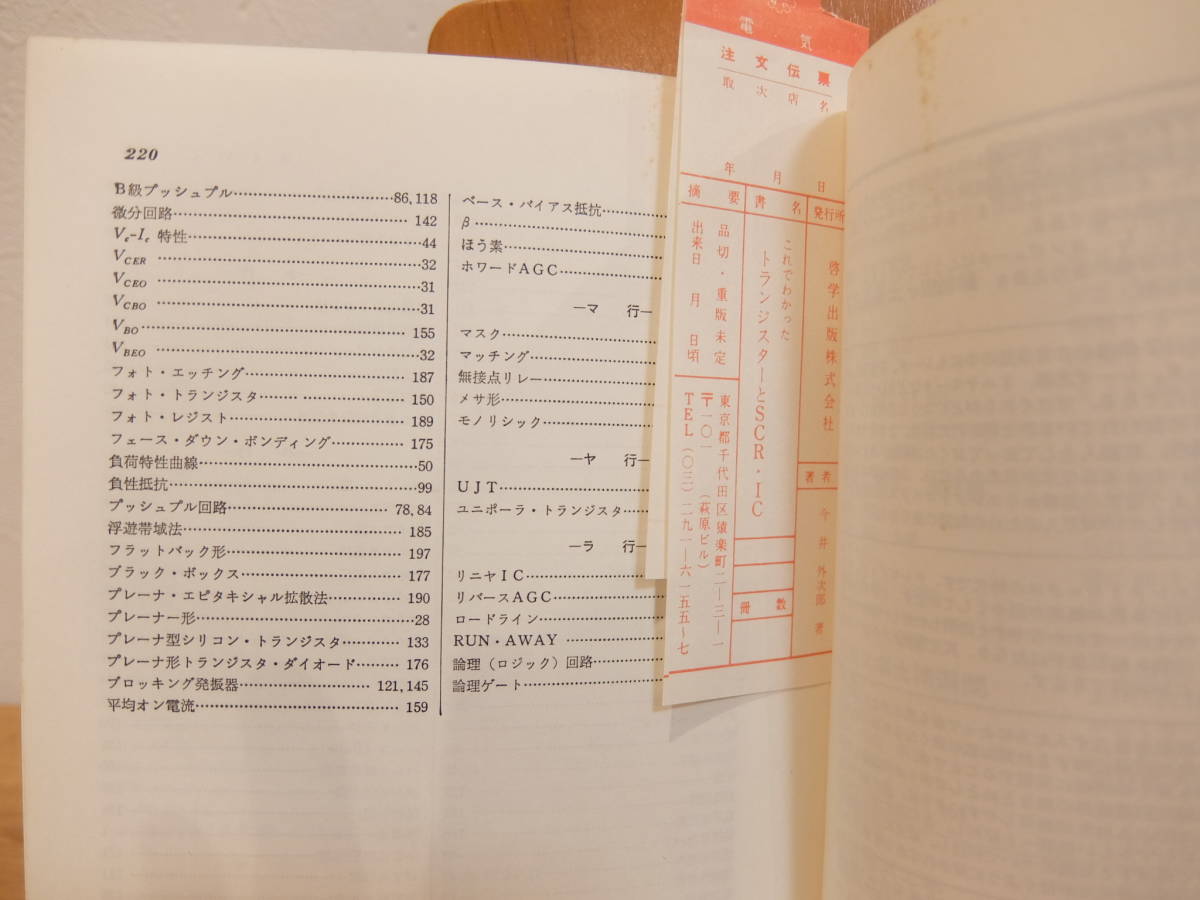 220
B級プッシュプル……………………86,118
微分回路…………………………… 142
Vc-Ic 特性……………………………44
VCER ……………………………32
VCEO ……………………………31
VCBO ……………………………31
VBO…………………………… 155
VBEO ……………………………32
フォト・エッチング…………………… 187
フォト・トランジスタ………………… 150
フォト・レジスト……………………… 189
フェース・ダウン・ボンディング………… 175
負荷特性曲線……………………………50
負性抵抗……………………………99
プッシュプル回路…………………… 78,84
浮遊帯域法…………………………… 185
フラットパック形…………………… 197
ブラック・ボックス…………………… 177
プレーナ・エピタキシャル拡散法………… 190
プレーナー形……………………………28
プレーナ型シリコン・トランジスタ……… 133
プレーナ形トランジスタ・ダイオード…… 176
ブロッキング発振器………………… 121,145
平均オン電流…………………………… 159
ベース・バイアス抵抗…………
β……………………
ほう素……………………
ホワードAGC………………
―マ 行―
マスク……………………
マッチング………………
無接点リレー……………
メサ形……………………
モノリシック……………
―ヤ 行―
UJT……………………
ユニポーラ・トランジスタ……
―ラ 行―
リニヤIC………………
リバースAGC……………
ロードライン……………
RUN・AWAY ……………
論理(ロジック)回路………
論理ゲート………………
電気
注文伝票
取次店名
年 月 日
発行所
啓学出版株式会社
著者
今井外次郎 著
書名
これでわかった
トランジスターとSCR・IC
冊数
摘要
品切・重版未定
出来日 月 日頃
東京都千代田区猿楽町二―三―一
(萩原ビル)
〒一〇一
TEL(〇三)二九一―六一五五~七